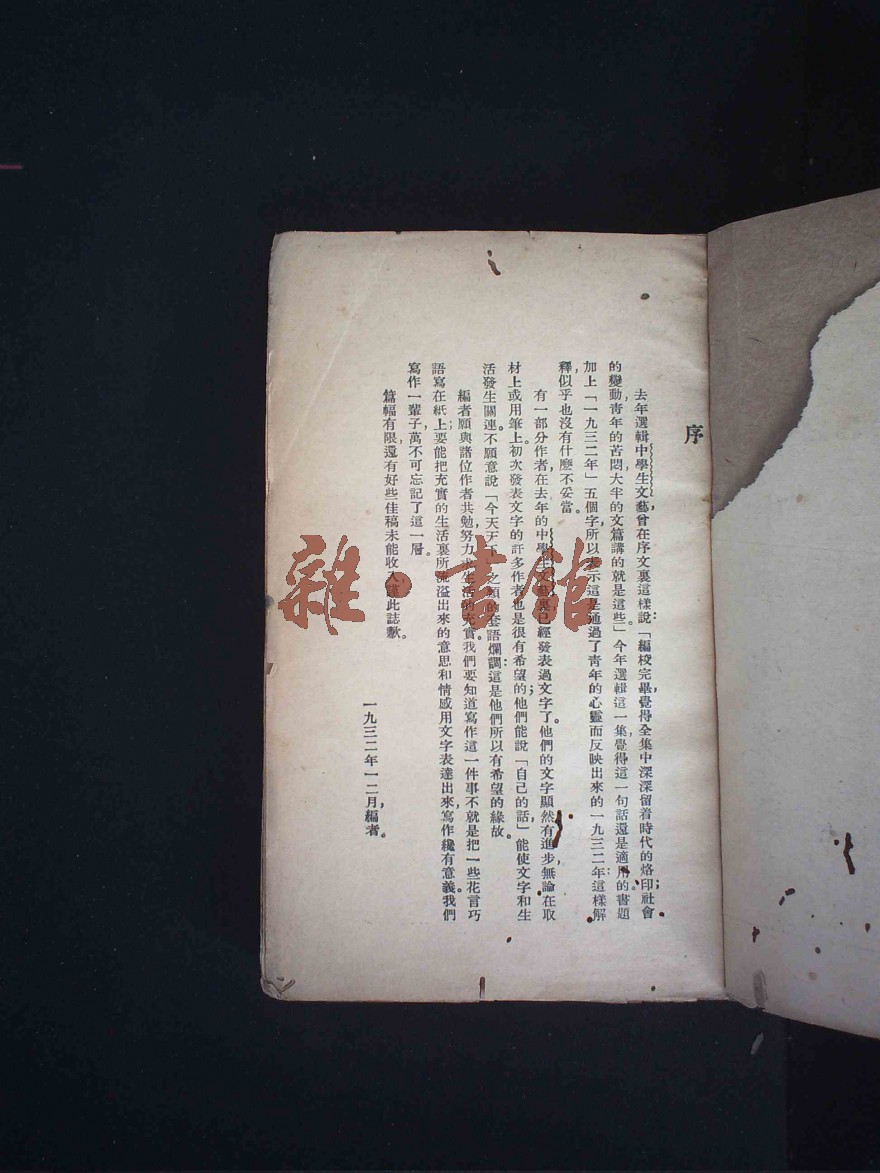 序
去年選輯中學生文藝，曾在序文裏這樣說：「編校完畢，覺得全集中深深留着時代的烙印；社會
的變動，青年的苦悶，大半的文篇講的就是這些。」今年選輯這一集，覺得這一句話還是適用的。書題
加上「一九三二年」五個字，所以表示這是通過了青年的心靈而反映出來的一九三二年：這樣解
釋，似乎也沒有什麽不妥當。
有一部分作者在去年的中學生文藝裏已經發表過文字了。他們的文字顯然有進步，無論在取
材上或用筆上。初次發表文字的許多作者也是很有希望的；他們能說「自己的話」，能使文字和生
活發生關連，不願意說「今天天下 之類的套語爛調：這是他們所以有希望的緣故。
編者願與諸位作者共勉，努力求生活的充實。我們要知道寫作這一件事不就是把一些花言巧
語寫在紙上；要能把充實的生活裏所流溢出來的意思和情感用文字表達出來，寫作纔有意義。我們
寫作一輩子，萬不可忘記了這一層。
篇幅有限，還有好些佳稿未能收入，謹此誌歉。
一九三二年一二月，編者。
雜·書館